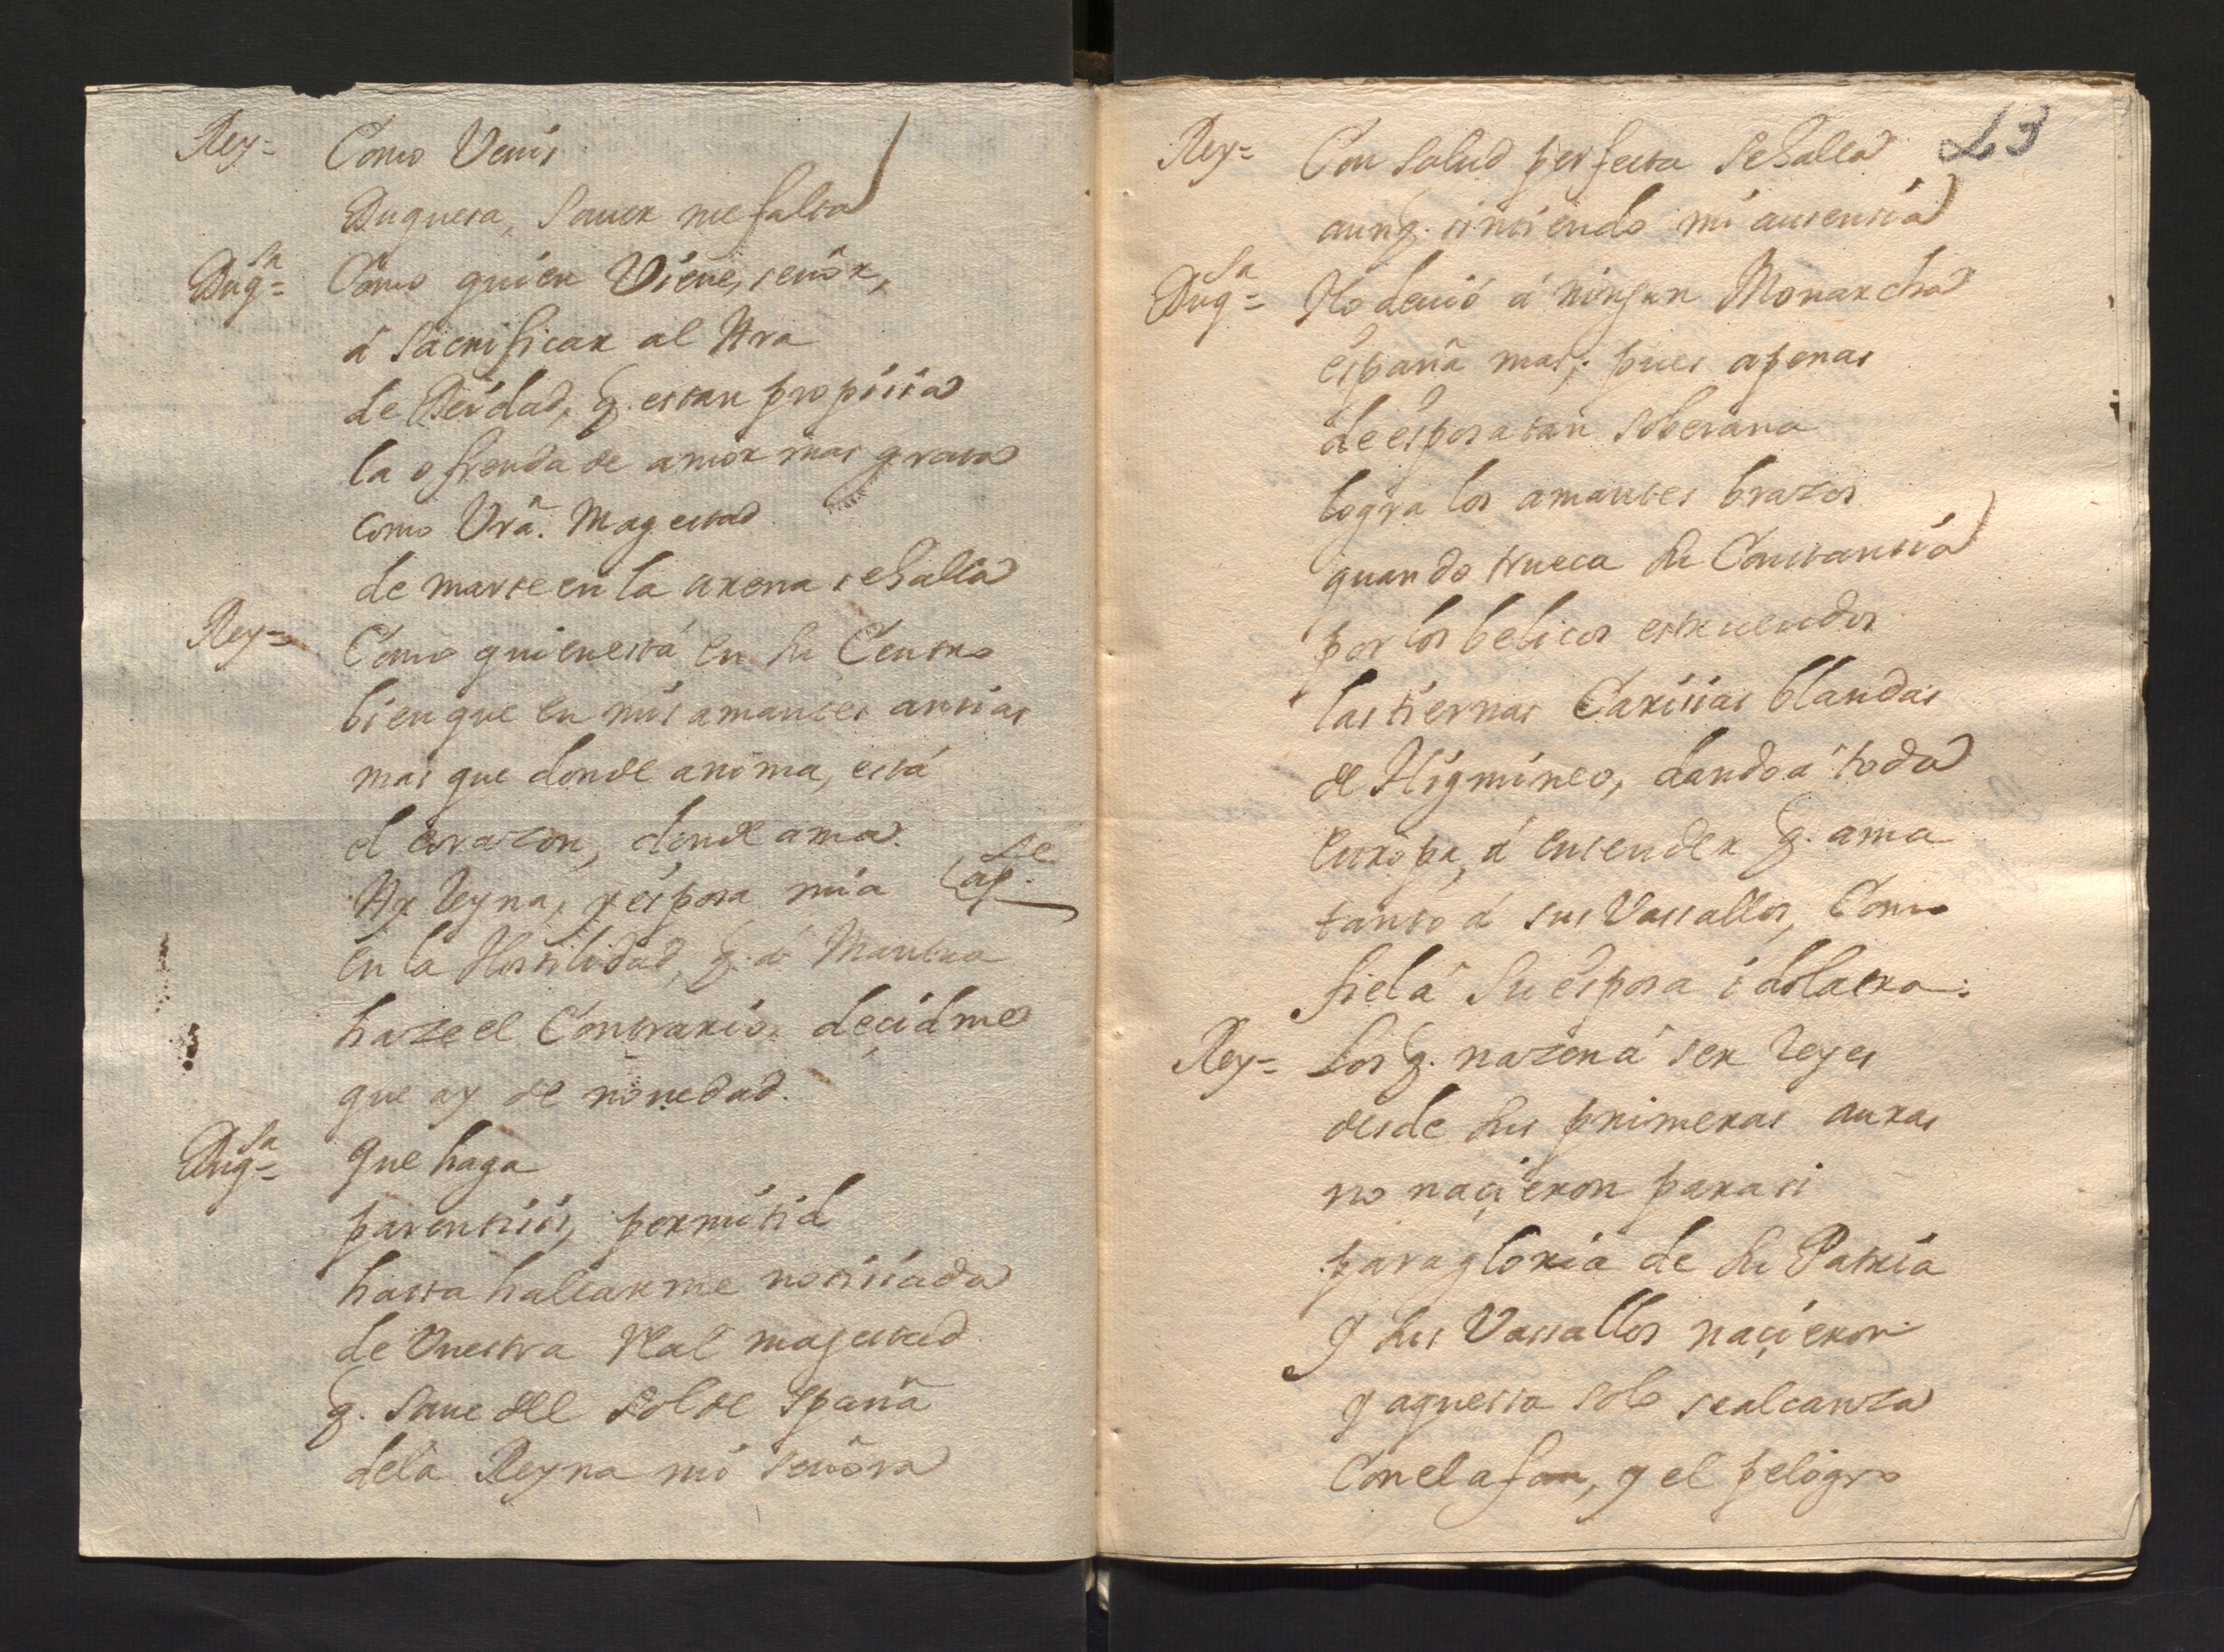 Rey= Como Venis
Duquesa, Sauer me falta
Duq.sa= Como quien Viene, señor,
á Sacrificar al Ara
de Deidad, q. estan propissia
la ofrenda de amor mas grata
como Vrã. Magestad
de marte en la arena se halla
Rey= Como quien está en su Centro
bien que en mis amantes ansias
mas que donde anima, está
el corazon, donde ama.
Ay Reyna, y esposa mia
en la Hostilidad, q. á Mantua
haze el Contrario, deçidme
que ay de nouedad.
Duq.sa= Que haga
parentisis, permitid
hasta hallarme notissiada
de Vuestra Rl mags estad
q. saue del sol de España
dela Reyna mi señora
23
Rey= Con salud perfecta se halla
aunq. sintiendo mi ausensia
Duq.sa= No deuió á ningun Monarcha
españa mas; pues apenas
de esposa tan soberana
logra los amantes brazos
quando trueca su Constansia
por los belicos estruendos
las tiernas Carissias blandas
de Higmineo, dando á toda
Europa, á entender q. ama
tanto á sus Vassallos, Como
fiel á su esposa idolatra.
Rey= Los q. nazen á ser Reyes
desde sus primeras auras
no naçieron para si
para gloria de su Patria
y sus Vassallos naçieron
y aquesta solo se alcanza
Con el afan, y el peligro